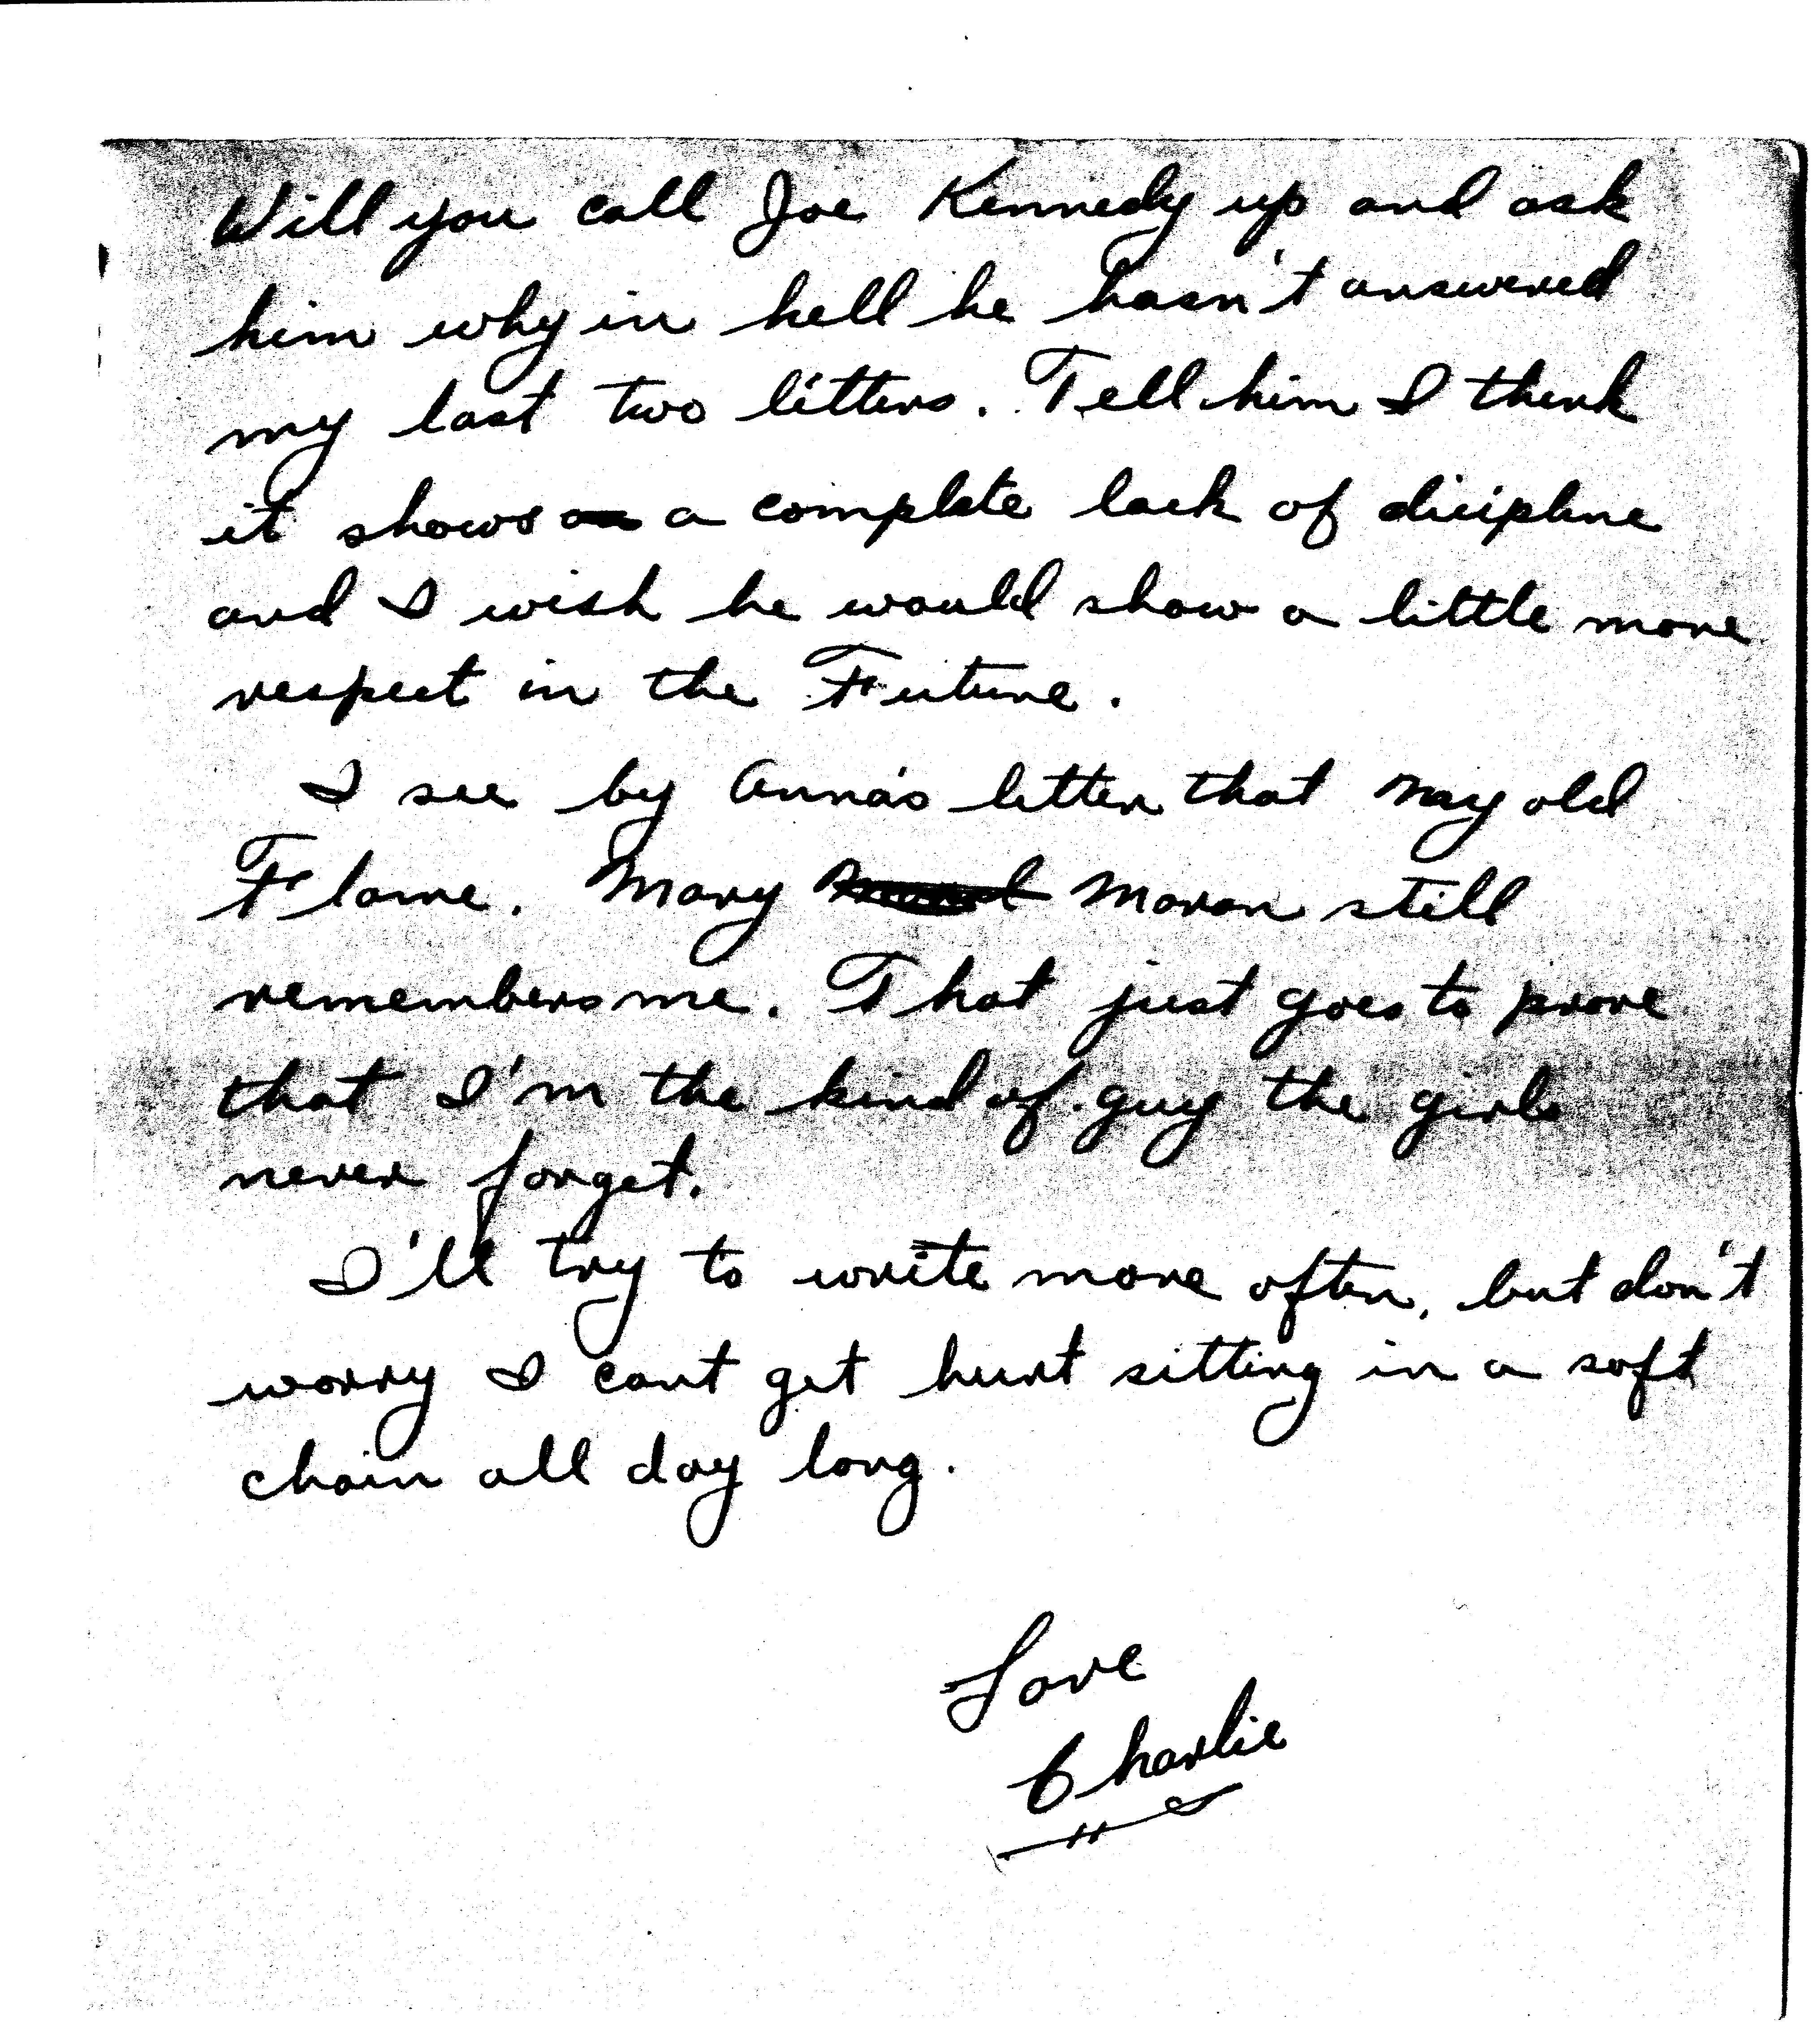 Will you call Joe Kennedy up and ask
him why in hell he hasn't answered
my last two letters. Tell him I think
it shows a complete lack of dicipline
and I wish he would show a little more
respect in the Future.
I see by Anna's letter that my old
Flame. Mary Moran still
remembers me. That just goes to prove
that I'm the kind of guy the girls
never forget.
I'll try to write more often, but don't
worry I cant get hurt sitting in a soft
chair all day long.
Love
Charlie